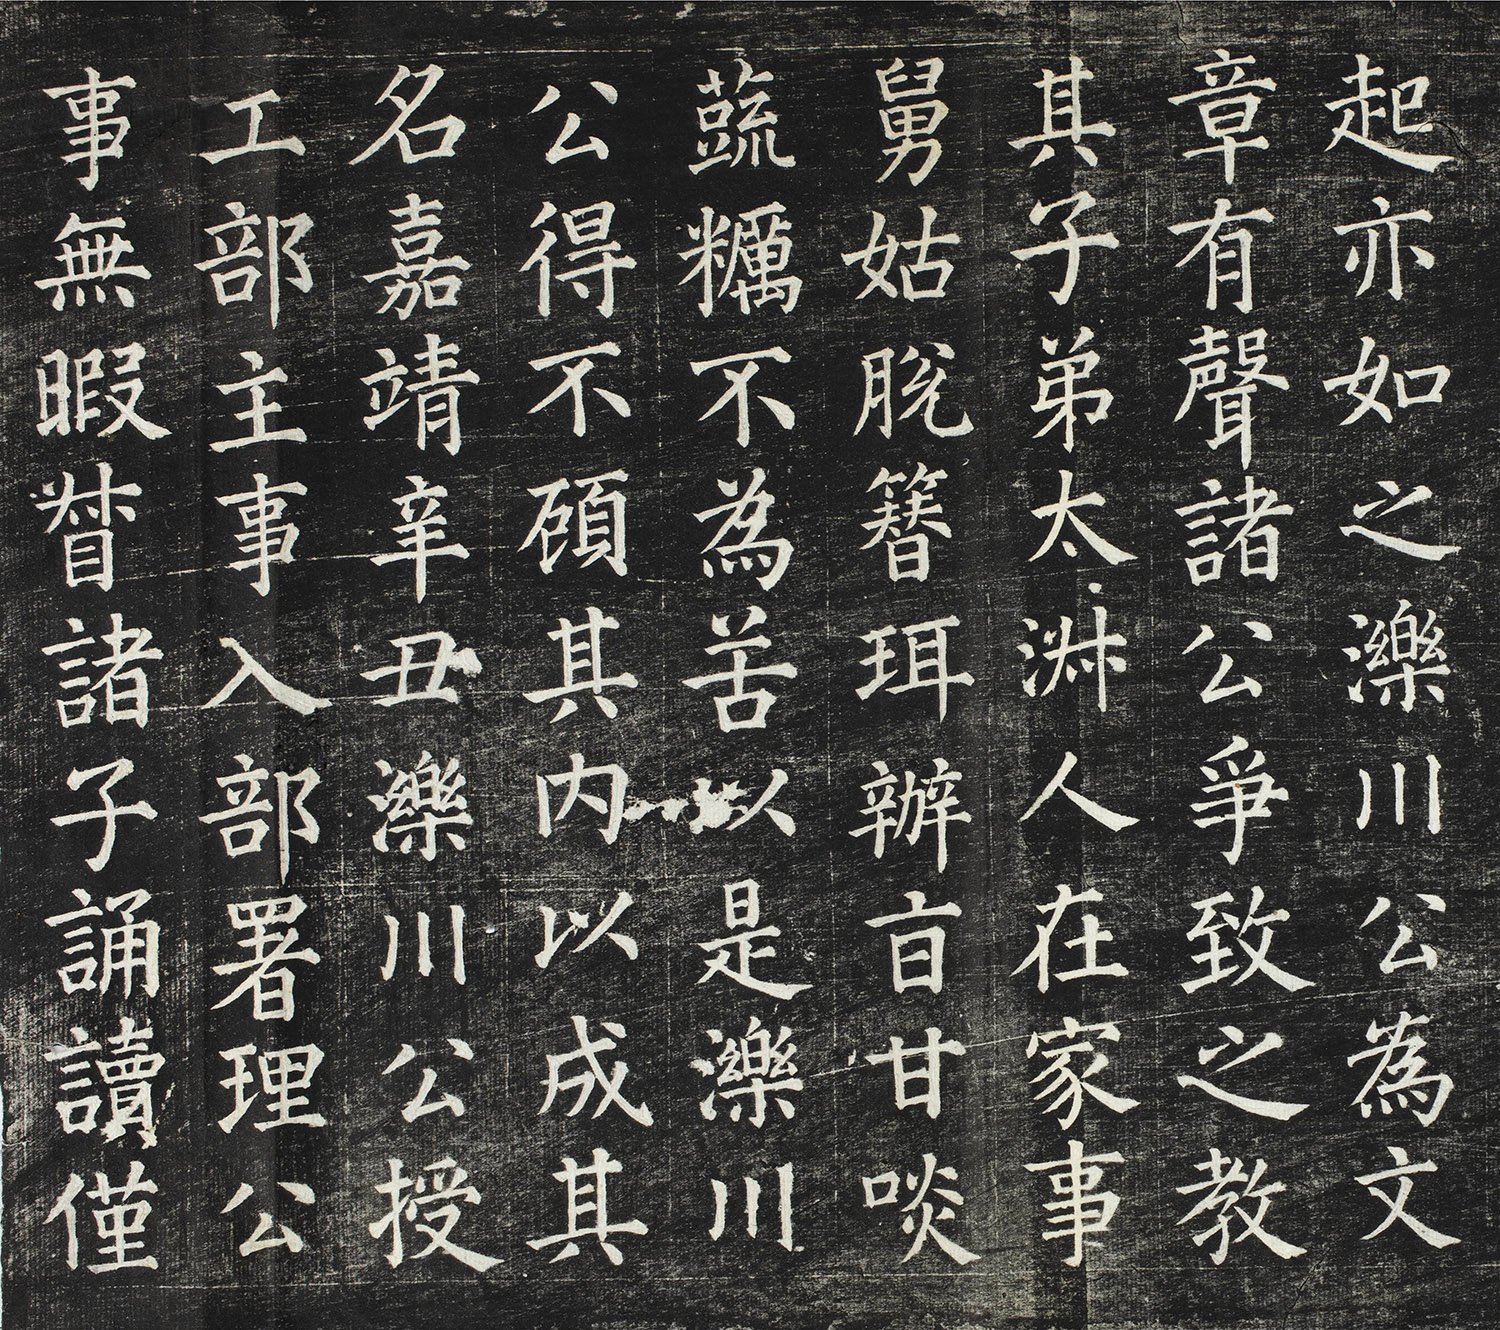 起亦如之濼川公為文
章有聲諸公爭致之教
其子弟太淑人在家事
舅姑脫簪珥辦旨甘啖
蔬糲不為苦以是濼川
公得不顧其内以成其
名嘉靖辛丑濼川公授
工部主事入部署理公
事無暇督諸子誦讀僅